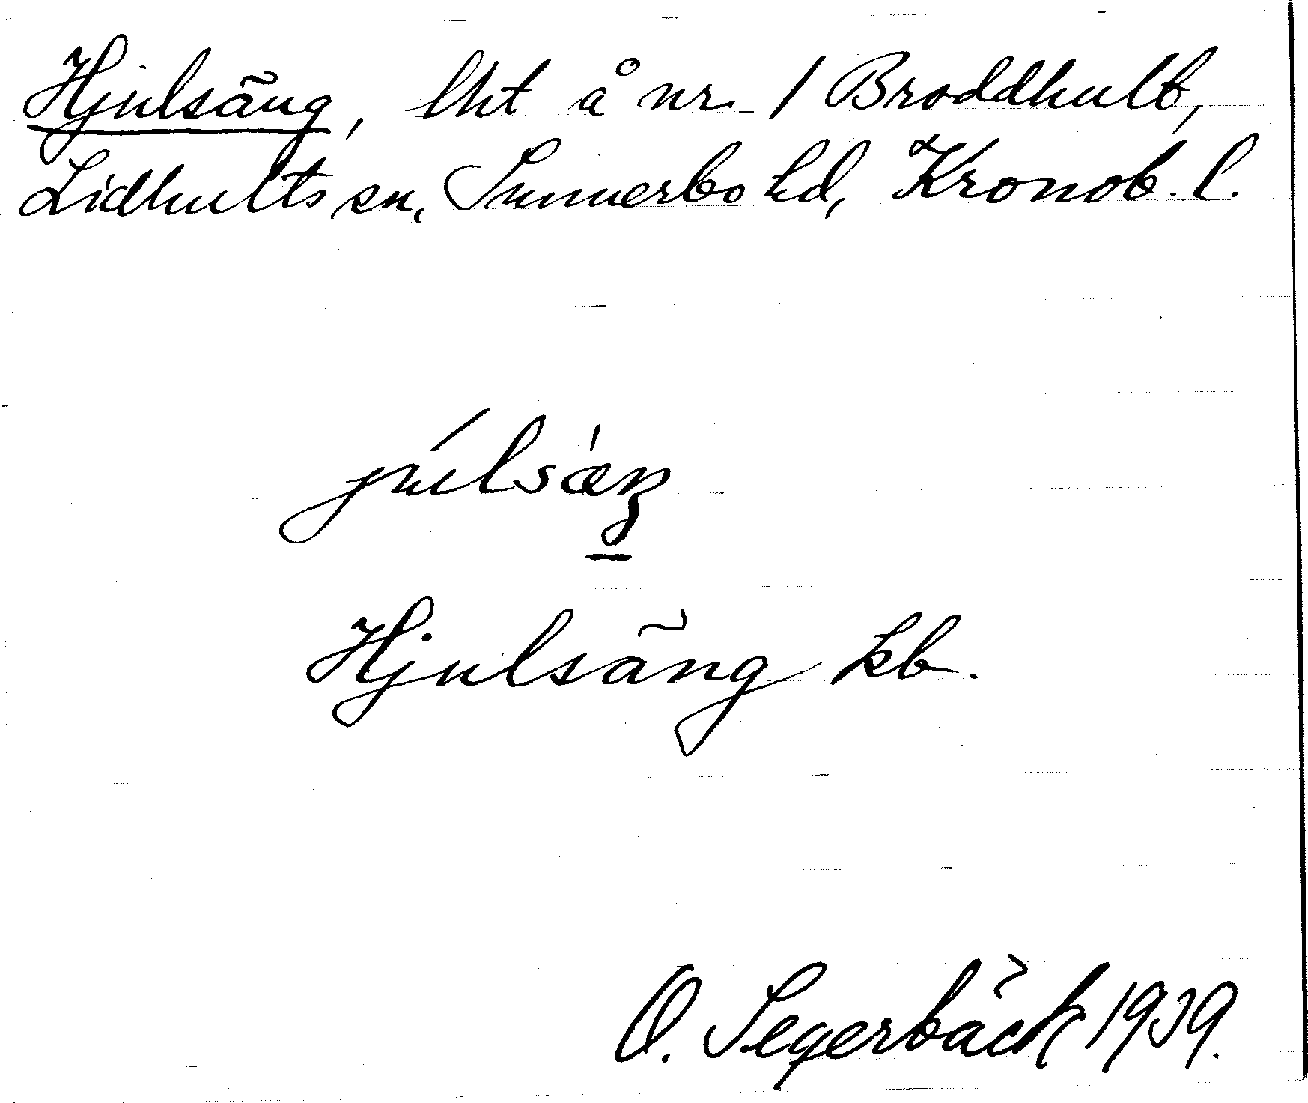 Hjulsäng, lht å nr 1 Broddhult,
Lidhults sn, Sunnerbo hd, Kronob. l.
júlsà̱ŋ
Hjulsäng kb.
O. Segerbäck 1939.